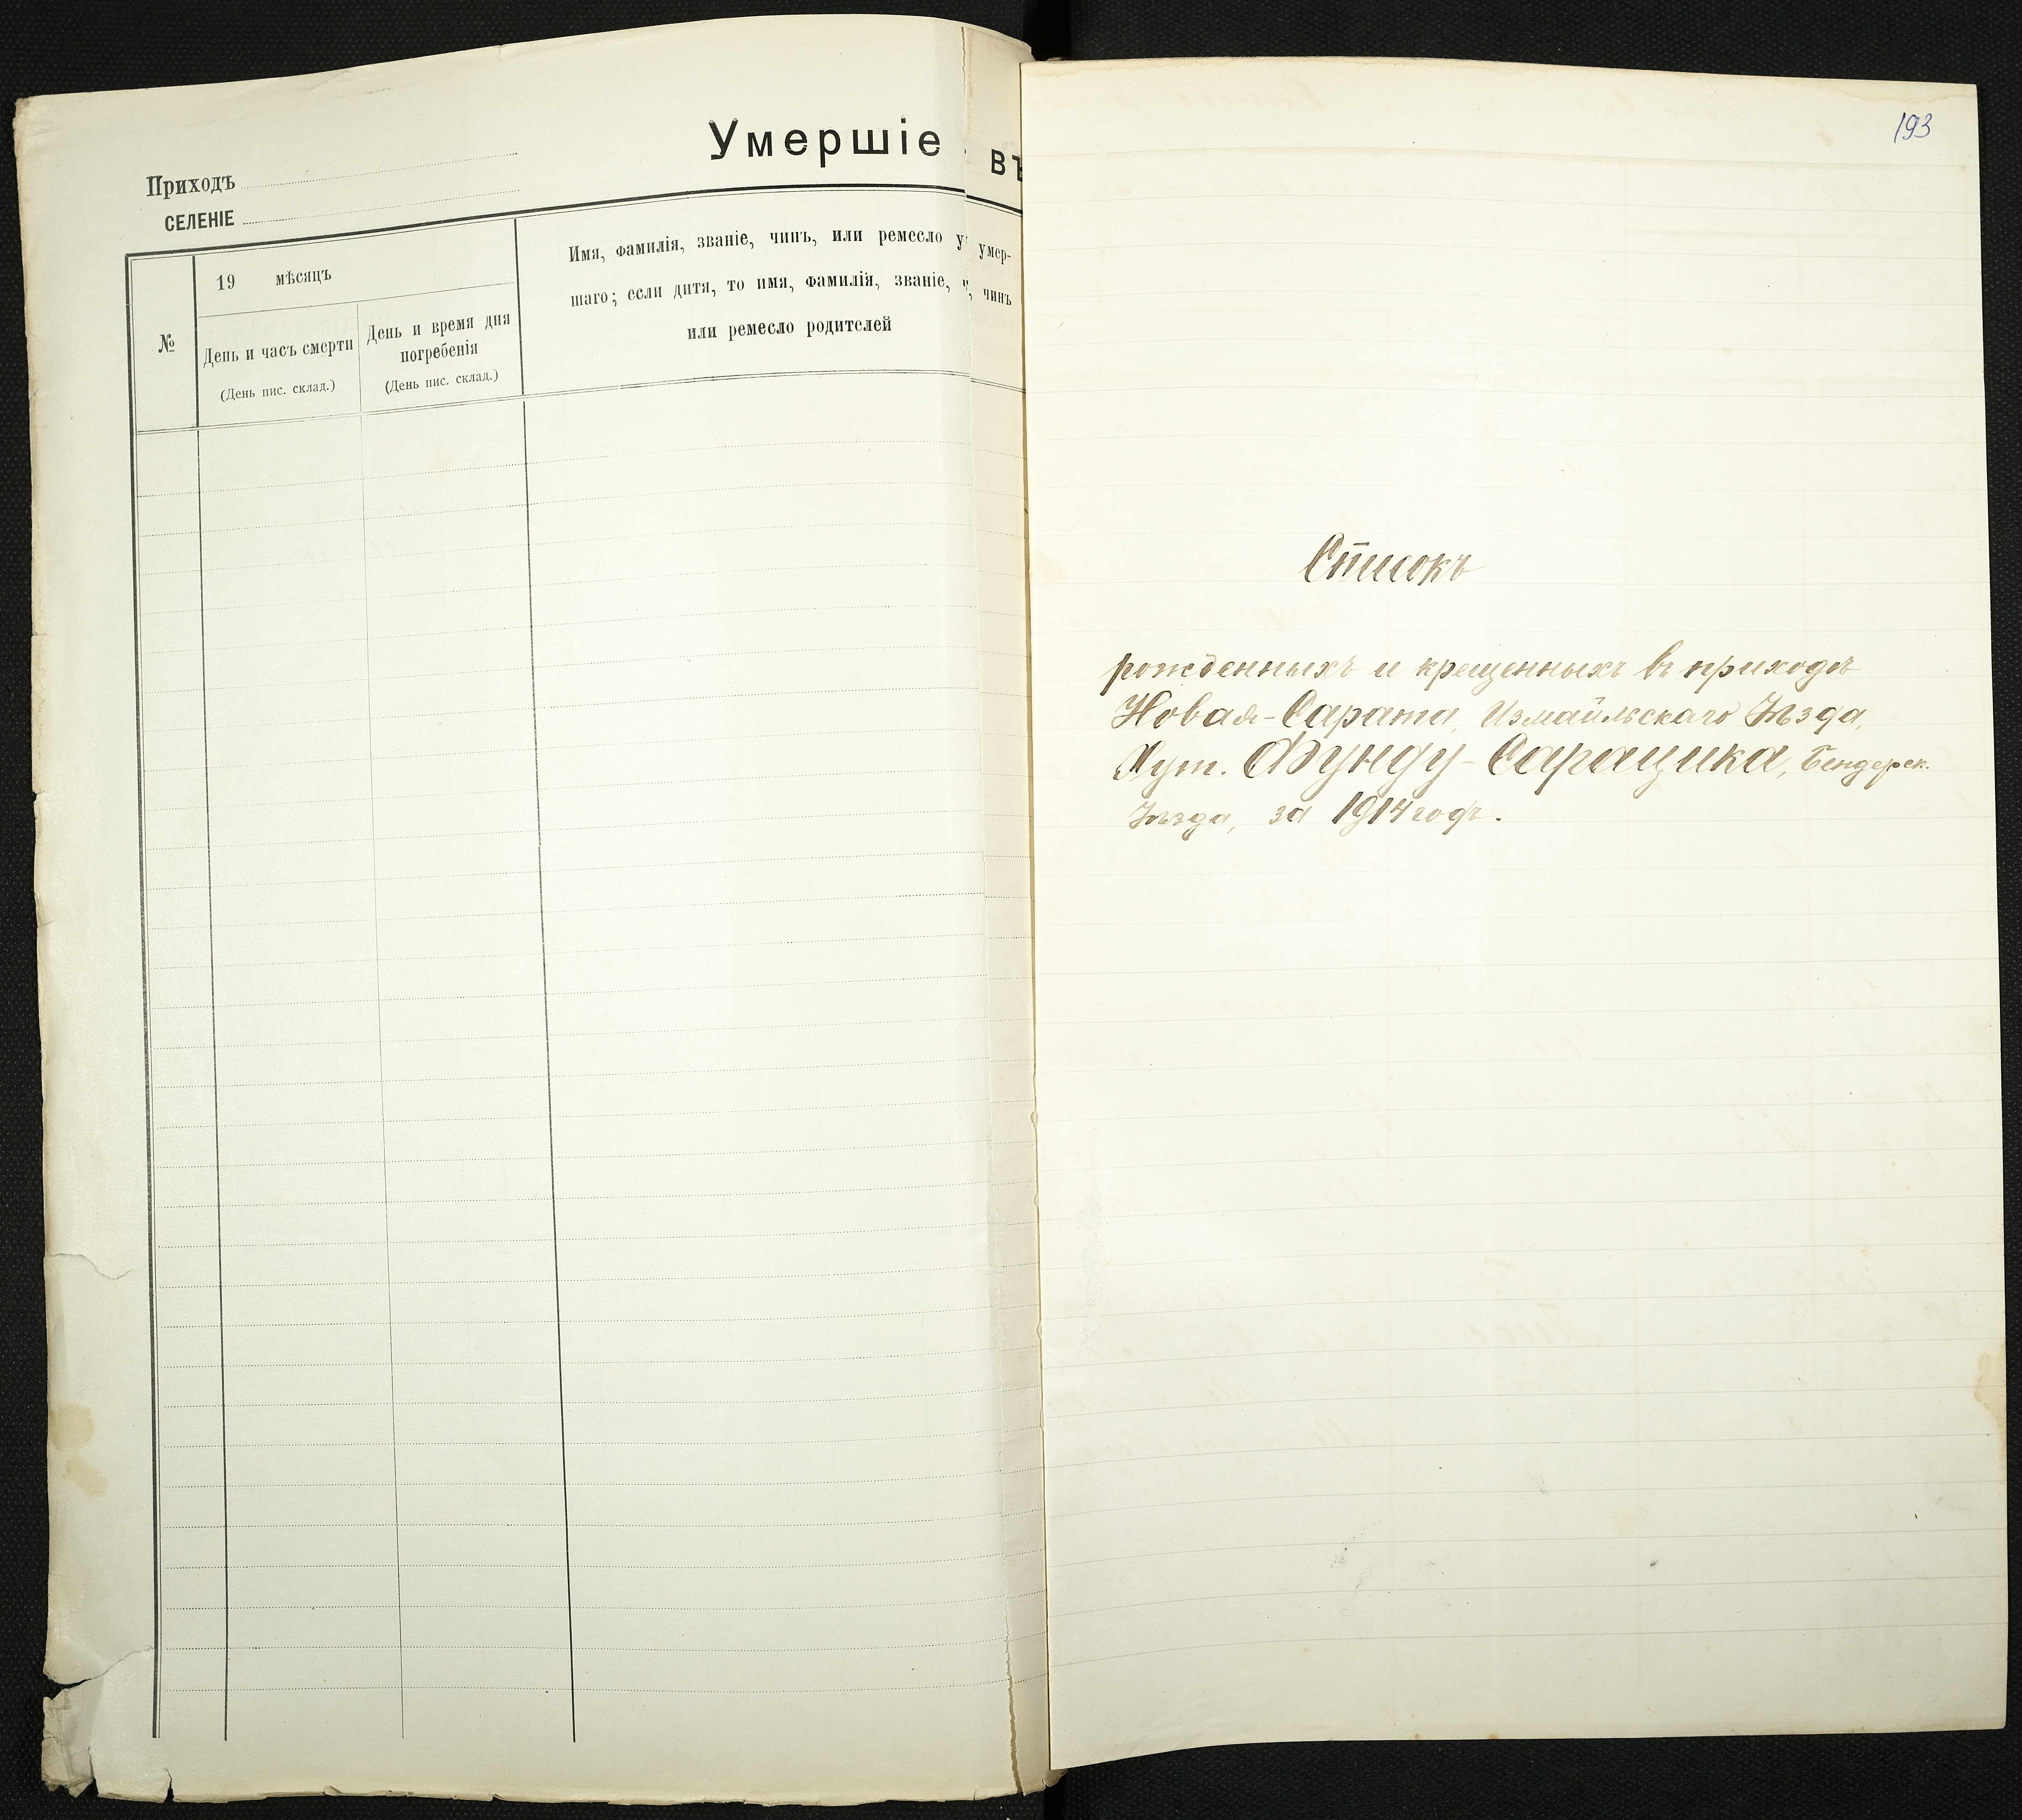 Умершіе въ
Приходъ
СЕЛЕНІЕ
№
19 мѣсяцъ
День и часъ смерти
(День пис. склад.)
День и время дня
погребенія
(День пис. склад.)
Имя, фамилія, званіе, чинъ, или ремесло умер-
шаго; если дитя, то имя, фамилія, званіе, чинъ
или ремесло родителей
193
Списокъ
рожденныхъ и крещенныхъ въ приходѣ
Новая-Сарата, Измаильскаго Уѣзда,
Хут. Фунду-Сарацика, Бендерск.
Уѣзда, за 1914 годъ.